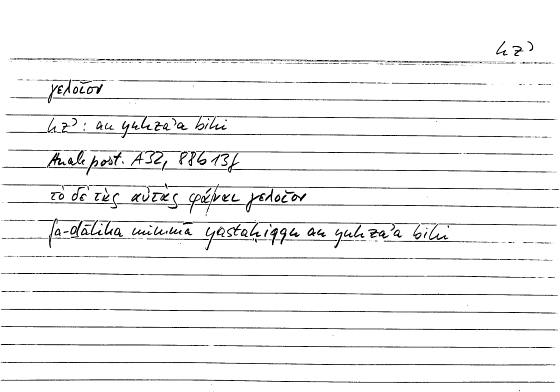 hzʾ
γελοῖον
hzʾ : an yuhzaʾa bihi
Anal. post. A32, 88b13f
τὸ δὲ τὰς αὐτὰς φάναι γελοῖον
fa-ḏālika mimmā yastaḥiqqu an yuhzaʾa bihi